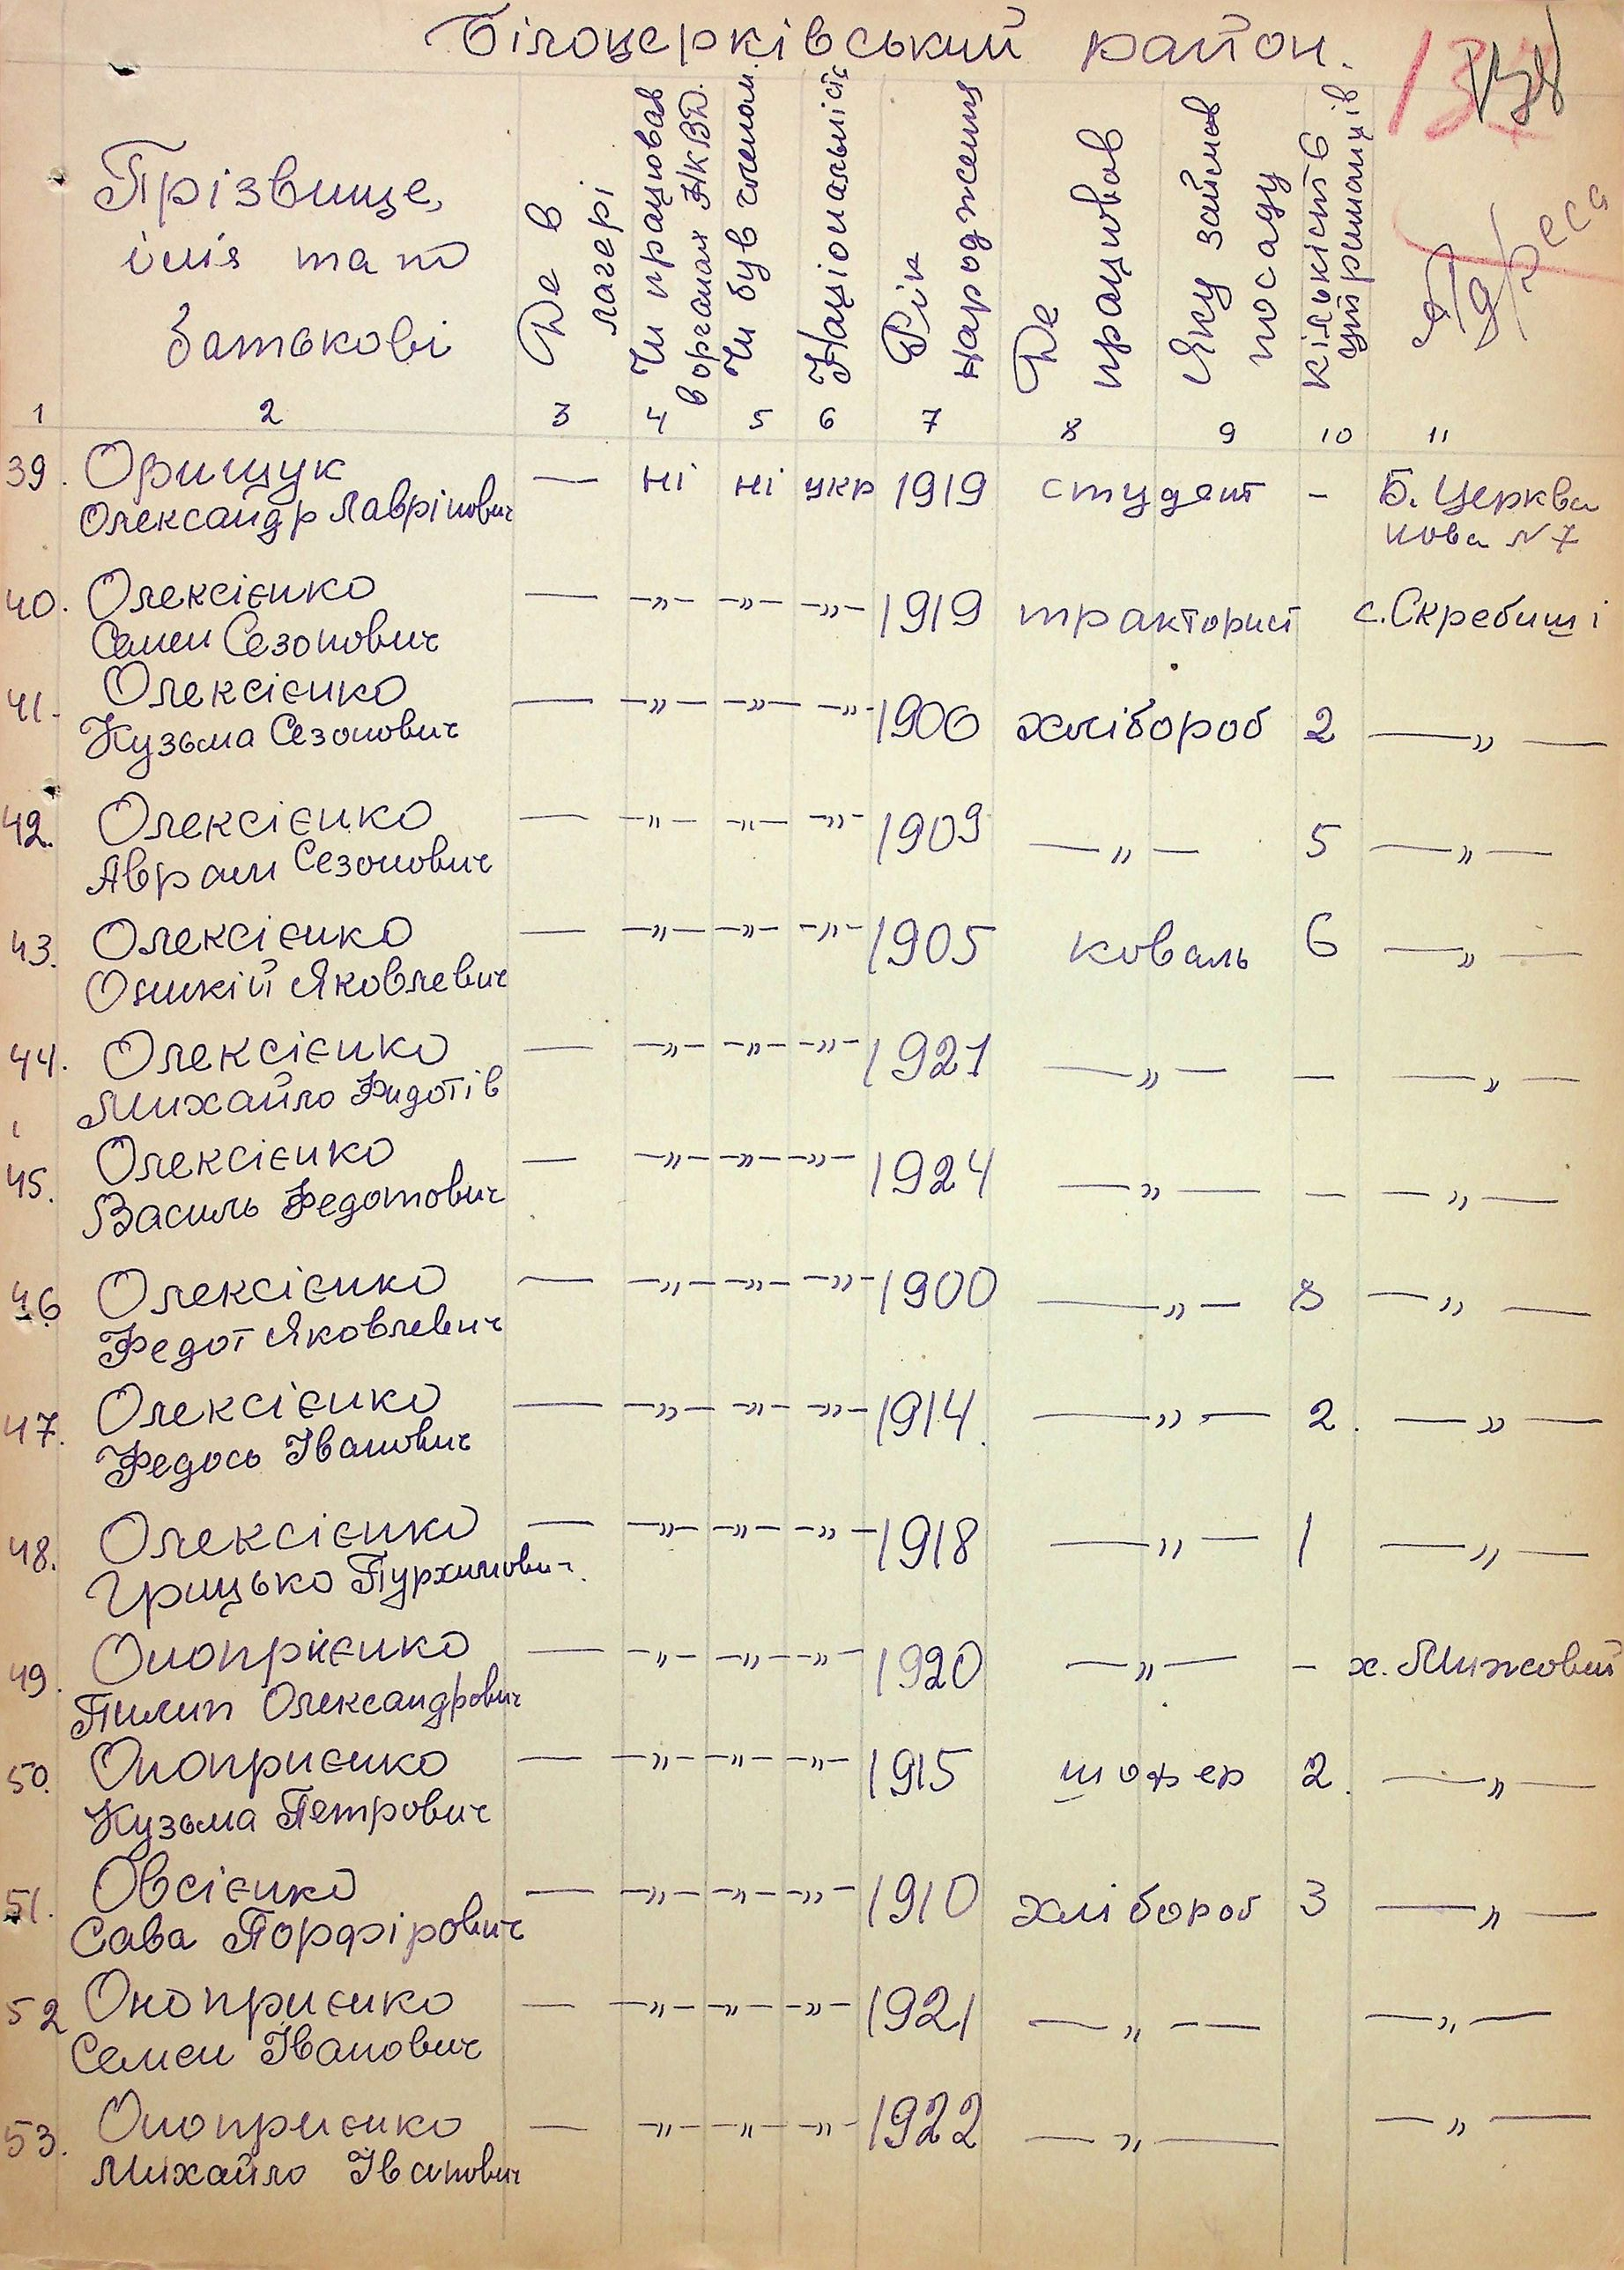 Білоцерківський район.
Прізвище,
імія та по
батькові
Де в
лагері
Чи працював
в органах НКВД.
Чи був членом.
Національність
Рік
народження
Де
працював
Яку займав
посаду
кількість
утриманців
Адреса
1 2 3 4 5 6 7 8 9 10 11
39. Орищук — ні ні укр 1919 студент – Б. Церква
Олександр Лаврінович нова N 7
40. Олексієнко — -„- -„- -„- 1919 тракторист с. Скребиші
Семен Сезонович
41. Олексієнко — -„- -„- -„- 1900 хлібороб 2 —„—
Кузьма Сезонович
42. Олексієнко — -„- -„- -„- 1909 —„— 5 —„—
Аврам Сезонович
43. Олексієнко — -„- -„- -„- 1905 коваль 6 —„—
Яковлевич
44. Олексієнко — -„- -„- -„- 1921 —„— – —„—
Михайло Фидотів
45. Олексієнко — -„- -„- -„- 1924 —„— – —„—
Василь Федотович
46 Олексієнко — -„- -„- -„- 1900 —„— 8 —„—
Федот Яковлевич
47. Олексієнко — -„- -„- -„- 1914. —„— 2. —„—
Федось Іванович
48. Олексієнко — -„- -„- -„- 1918 —„— 1 —„—
Грицько
49. Оноприєнко — -„- -„- -„- 1920 —„— – х. Мижовий
Пилип Олександрович
50. Оноприєнко — -„- -„- -„- 1915 шофер 2. —„—
Кузьма Петрович
51. Овсієнко — -„- -„- -„- 1910 хлібороб 3 —„—
Сава Порфірович
52 Оноприєнко — -„- -„- -„- 1921 —„— —„—
Семен Іванович
53. Оноприєнко — -„- -„- -„- 1922 —„— —„—
Михайло Іванович